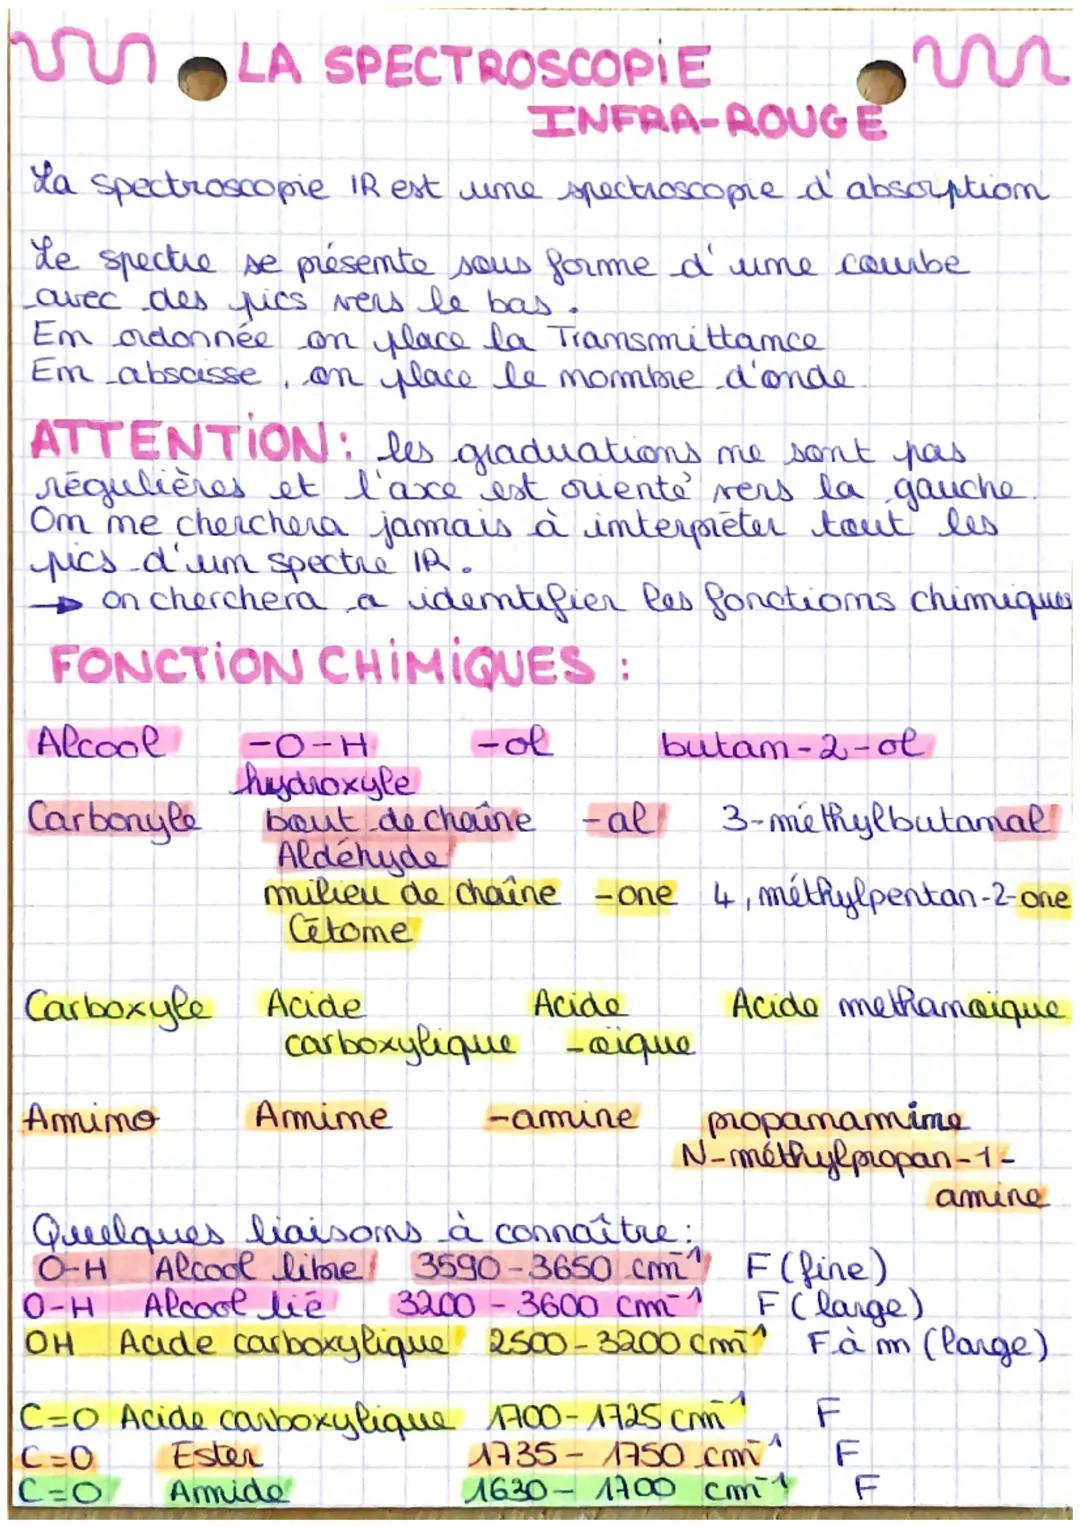 LA SPECTROSCOPIE
INFRA-ROUGE
La spectroscopie IR est une spectroscopie d'absorption
Le spectre se présente sous forme d'une courbe
avec des pics vers le bas.
En ordonnée on place la Transmittance
En abscisse, on place le nombre d'onde.
ATTENTION: les graduations ne sont pas
régulières et l'axe est orienté vers la gauche.
On ne cherchera jamais à interpréter tout les
pics d'un spectre IR.
→ on cherchera a identifier les fonctions chimiques
FONCTION CHIMIQUES :
Alcool -O-H -ol butan-2-ol
hydroxyle
Carbonyle bout de chaîne -al 3-méthylbutanal
Aldéhyde
milieu de chaîne -one 4, méthylpentan-2-one
Cétone
Carboxyle Acide Acide Acide methanoïque
carboxylique -oïque
Amino Amine -amine propanamine
N-méthylpropan-1-
amine
Quelques liaisons à connaître:
O-H Alcool libre 3590-3650 cm⁻¹ F (fine)
O-H Alcool lié 3200 - 3600 cm⁻¹ F (large)
OH Acide carboxylique 2500-3200 cm⁻¹ F à m (large)
C=O Acide carboxylique 1700-1725 cm⁻¹ F
C=O Ester 1735 - 1750 cm⁻¹ F
C=O Amide 1630 - 1700 cm⁻¹ F